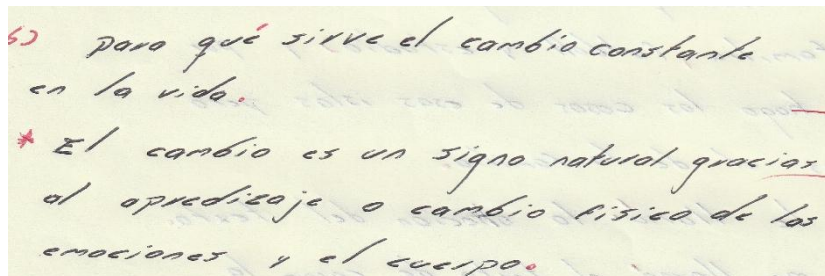 5) para qué sirve el cambio constante
en la vida.
* El cambio es un signo natural gracias
al apredizaje o cambio fisico de las
emociones y el cuerpo.